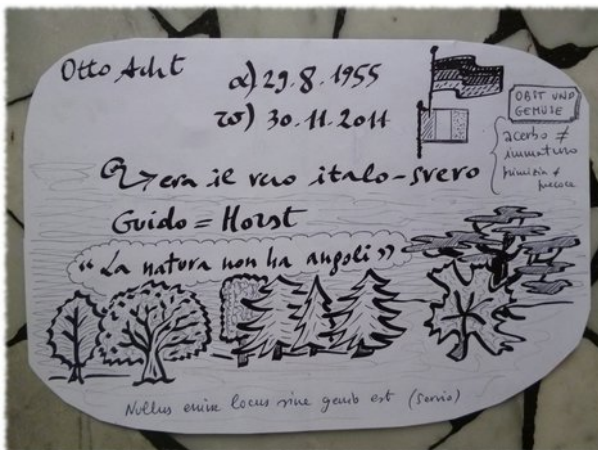 Otto Acht
α) 29.8.1955
ω) 30.11.2011
OBST UND
GEMUSE
acerbo ≠
immaturo
primizia ≠
precoce
era il vero italo-svevo
Guido = Horst
“La natura non ha angoli”
Nullus enim locus sine genio est (Servio)